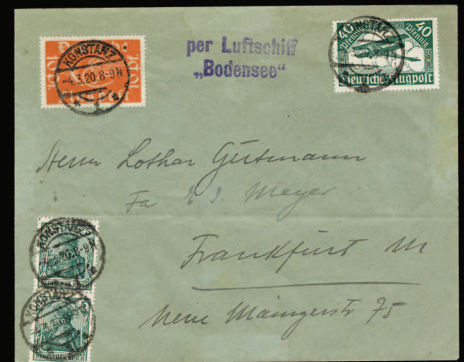 KONSTANZ
-4.3.20.8-9N
per Luftschiff
„Bodensee“
KONSTANZ
40 40
Pfennig Pfennig
Deutsche Flugpost
Herrn Lothar Gutmann
Fa Meyer
Frankfurt M
Neue Mainzerstr 75
KONSTANZ
KONSTANZ